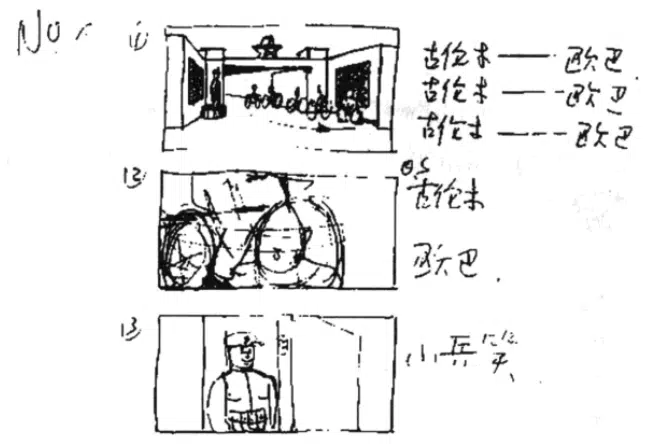 No
古伦木——欧巴
古伦木——欧巴
古伦木——欧巴
13
O.S
古伦木
欧巴.
13
小兵